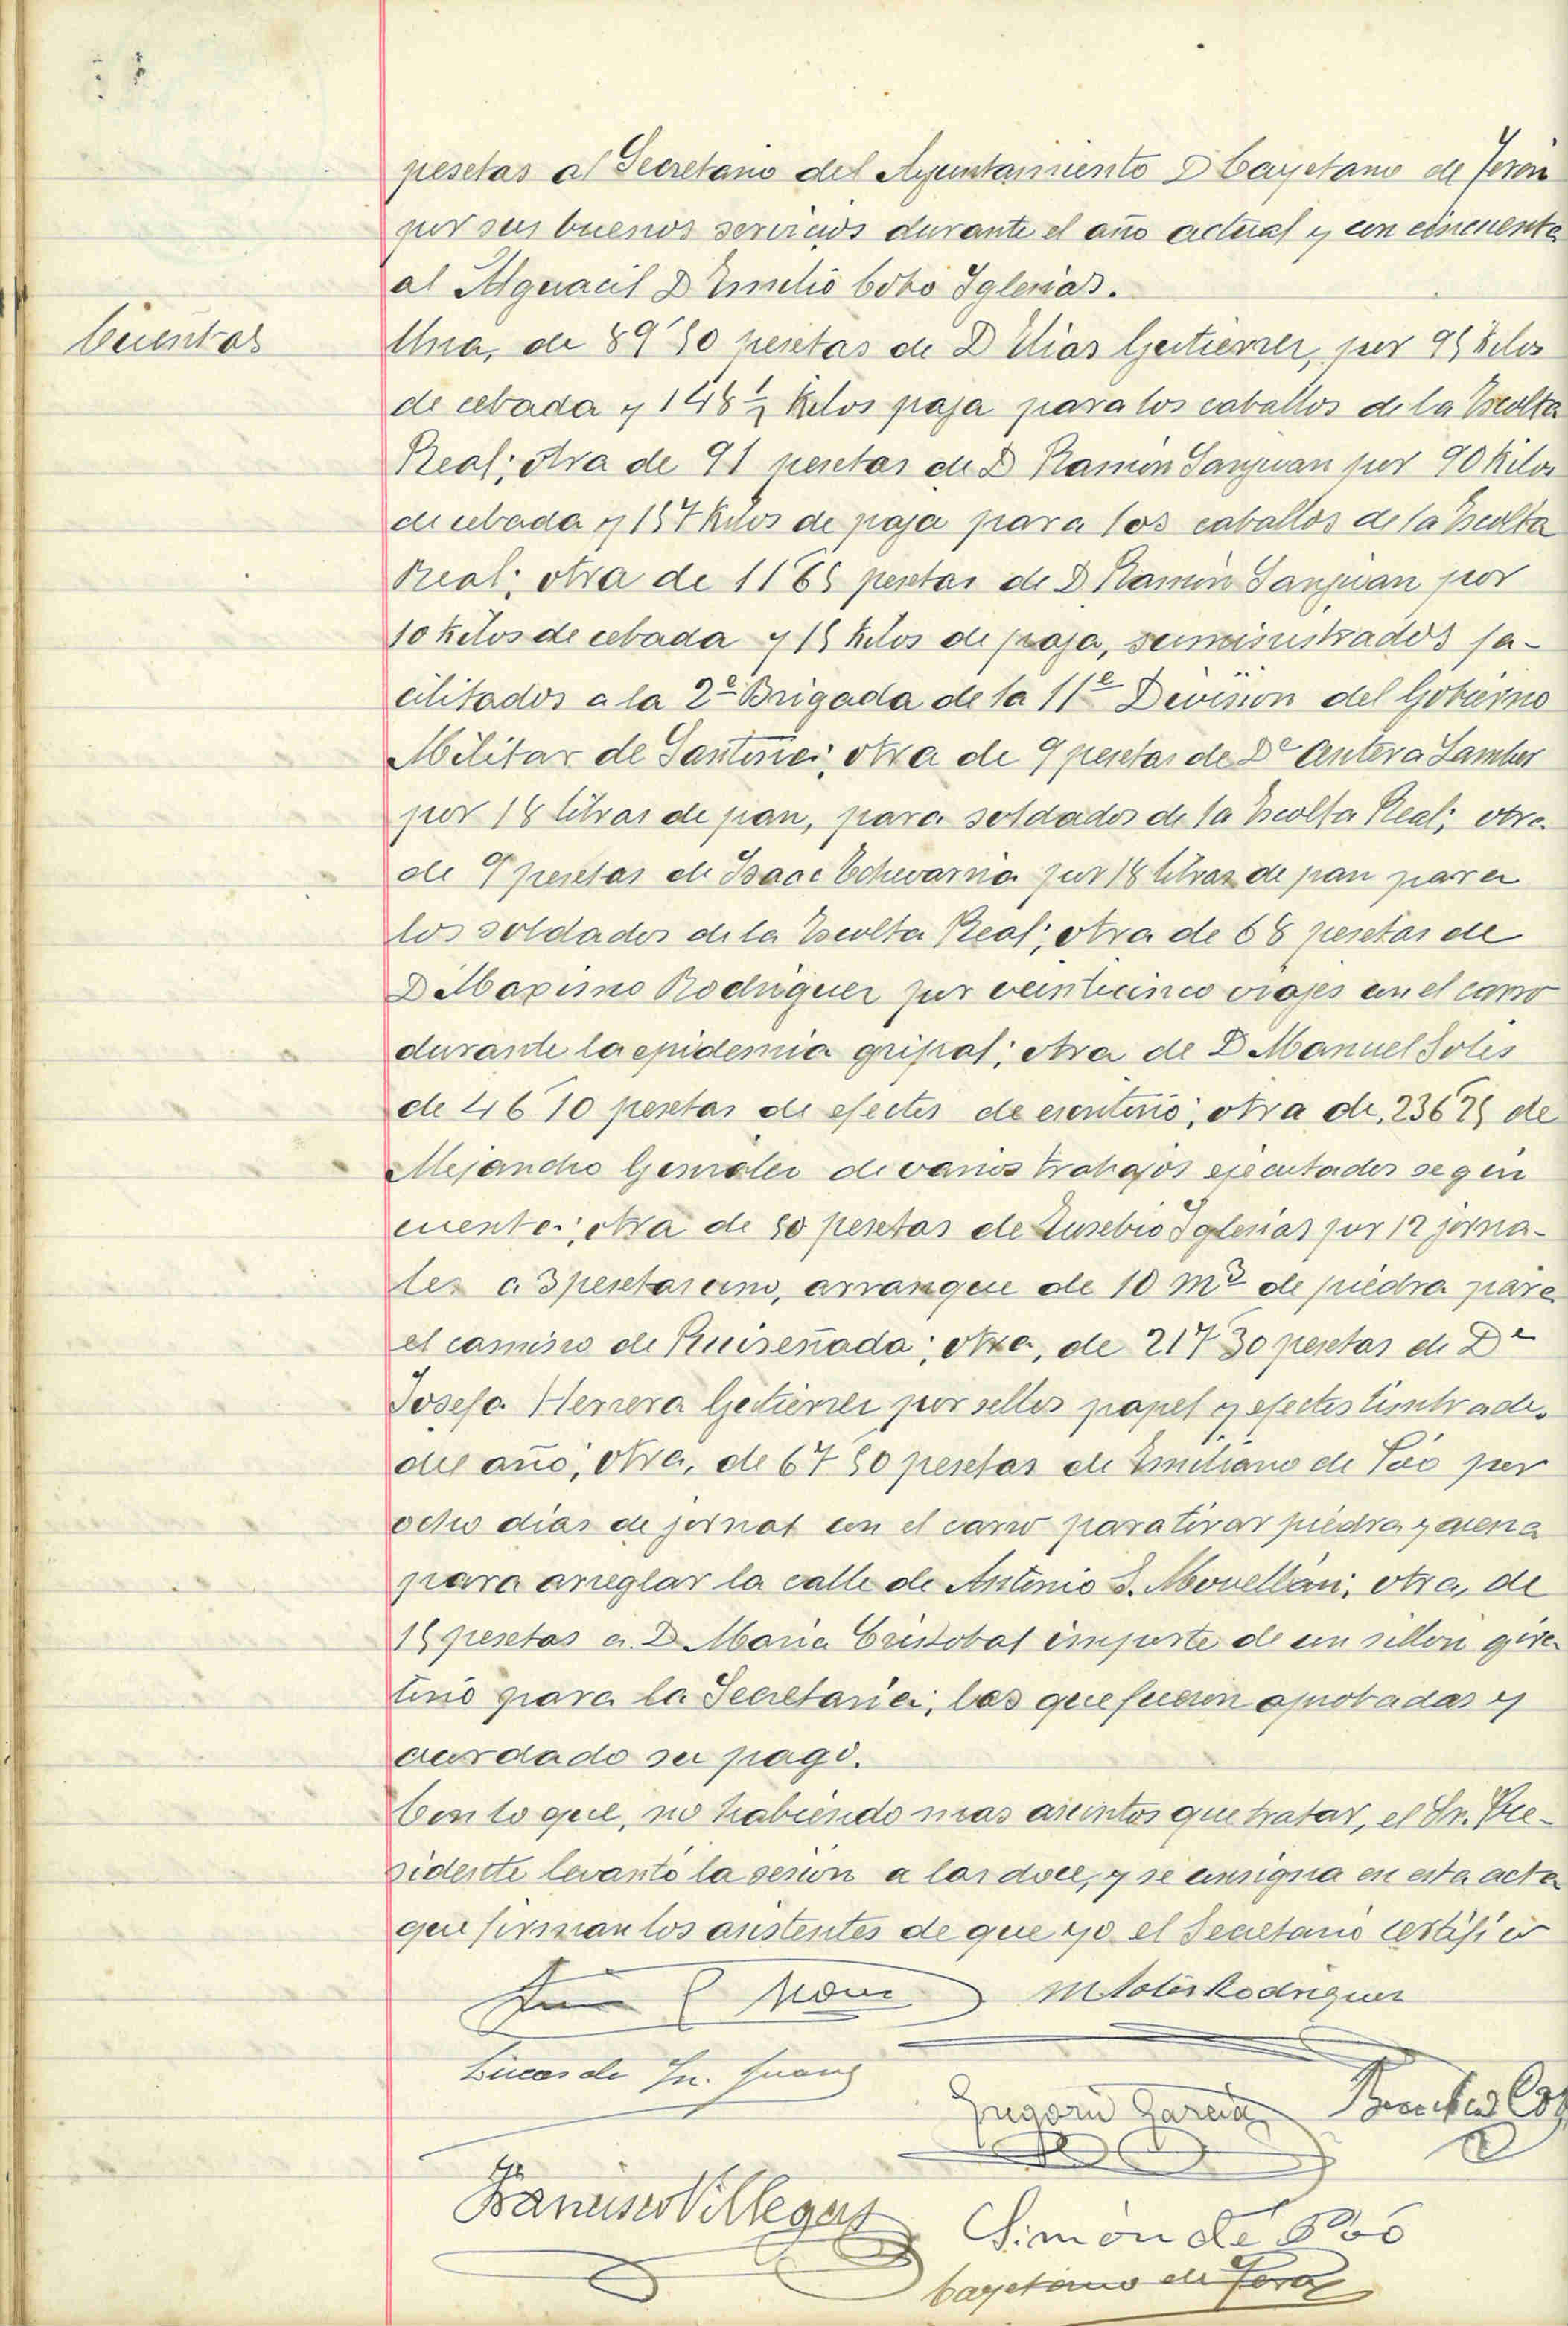 pesetas al Secretario del Ayuntamiento D Cayetano de Terán
por sus buenos servicios durante el año actual y con cincuenta
al Alguacil D Emilio Cobo Iglesias.
Cuentas
Una, de 89'50 pesetas de D Elias Gutierrez, por 95 Kilos
de cebada y 148 1/2 Kilos paja para los caballos de la Escolta
Real; otra de 91 pesetas de D Ramón Sanjuan por 90 Kilos
de cebada y 157 Kilos de paja para los caballos de la Escolta
Real; otra de 11'65 pesetas de D Ramón Sanjuan por
10 Kilos de cebada y 15 Kilos de paja, suministrados fa-
cilitados a la 2ª Brigada de la 11ª Division del Gobierno
Militar de Santoña; otra de 9 pesetas de Dª Antera
por 18 libras de pan, para soldados de la Escolta Real; otra
de 9 pesetas de Isaac Echevarria por 18 libras de pan para
los soldados de la Escolta Real; otra de 68 pesetas de
D Maximo Rodriguez por veinticinco viajes en el carro
durante la epidemia gripal; otra de D Manuel Solis
de 46'10 pesetas de efectos de escritorio; otra de, 236'25 de
Alejandro Gonzalez de varios trabajos ejecutados según
cuenta; otra de 50 pesetas de Eusebio Iglesias por 12 jorna-
les a 3 pesetas uno, arranque de 10 m3 de piedra para
el camino de Ruiseñada; otra, de 217'30 pesetas de Dª
Josefa Herrera Gutierrez por sellos papel y efectos timbrados
del año; otra, de 67'50 pesetas de Emiliano de Póo por
ocho dias de jornal con el carro para tirar piedra y arena
para arreglar la calle de Antonio S. Movellán; otra, de
15 pesetas a D Maria Cristobal importe de un sillon gira-
torio para la Secretaria; las que fueron aprobadas y
acordado su pago.
Con lo que, no habiendo mas asuntos que tratar, el Sr. Pre-
sidente levantó la sesion a las doce, y se consigna en esta acta
que firman los asistentes de que yo el Secretario certifico
M Solis Rodriguez
Lucas de
Gregorio Garcia
Francisco Villegas
Simón de Póo
Cayetano de Terán